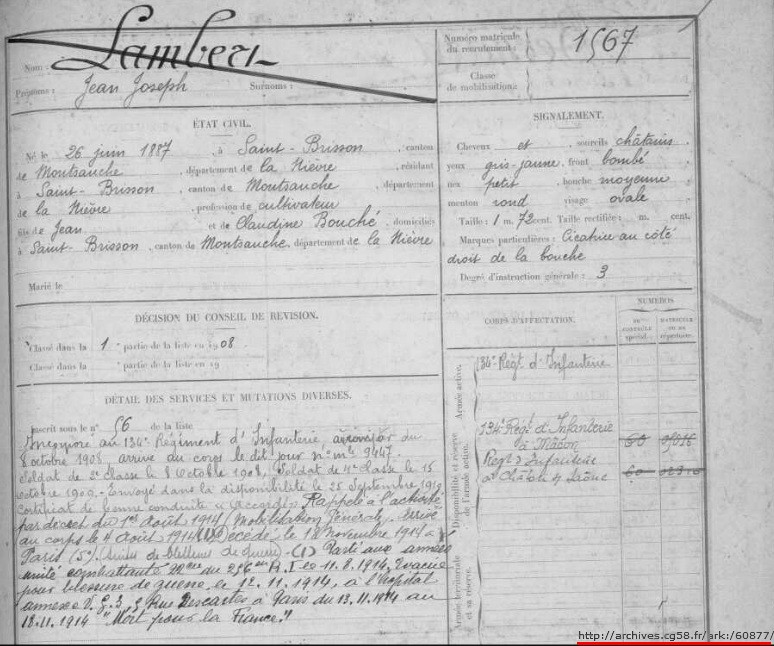 Nom : Lambert
Prénoms : Jean Joseph Surnoms :
Numéro matricule
du recrutement : 1567
Classe
de mobilisation :
ÉTAT CIVIL.
Né le 26 juin 1887, à Saint-Brisson, canton
de Montsauche, département de la Nièvre, résidant
à Saint-Brisson, canton de Montsauche, département
de la Nièvre, profession de cultivateur
fils de Jean et de Claudine Bouché, domiciliés
à Saint-Brisson, canton de Montsauche, département de la Nièvre
Marié le
SIGNALEMENT.
Cheveux et sourcils châtains
yeux gris-jaune, front bombé
nez petit, bouche moyenne
menton rond visage ovale
Taille : 1 m. 72 cent. Taille rectifiée : m. cent.
Marques particulières : Cicatrice au côté
droit de la bouche
Degré d'instruction générale : 3
DÉCISION DU CONSEIL DE REVISION.
Classé dans la 1 partie de la liste en 1908
Classé dans la partie de la liste en 19
DÉTAIL DES SERVICES ET MUTATIONS DIVERSES.
Inscrit sous le n° 56 de la liste
Incorporé au 134e Régiment d'Infanterie à compter du
8 octobre 1908, arrivé au corps le dit jour n° mle 9447.
Soldat de 2e classe le 8 Octobre 1908, Soldat de 1e classe le 15
octobre 1909. Envoyé dans la disponibilité le 25 Septembre 1910
certificat de bonne conduite "Accordé". Rappelé à l'activité
par décret du 1er Août 1914 (Mobilisation Générale). Arrivé
au corps le 4 Août 1914 (1) Décédé le 18 Novembre 1914 à
Paris (5e) (suites de blessures de guerre) (1) Parti aux armées
unité combattante 22me du 256me R.I. le 11.8.1914, Evacué
pour blessure de guerre le 12.11.1914, à l'hôpital
annexe V.G.3, 5 Rue Descartes à Paris du 13.11.1914 au
18.11.1914 "Mort pour la France."
CORPS D'AFFECTATION.
NUMÉROS
AU
CONTROLE
spécial.
MATRICULE
ou au
répertoire.
Armée active.
134e Régt d'Infanterie
Disponibilité et réserve
de l'armée active.
134e Régt d'Infanterie
à Mâcon
Régt d'Infanterie
à Châlon s/ Saône
Armée territoriale
et sa réserve.
http://archives.cg58.fr/ark:/60877/